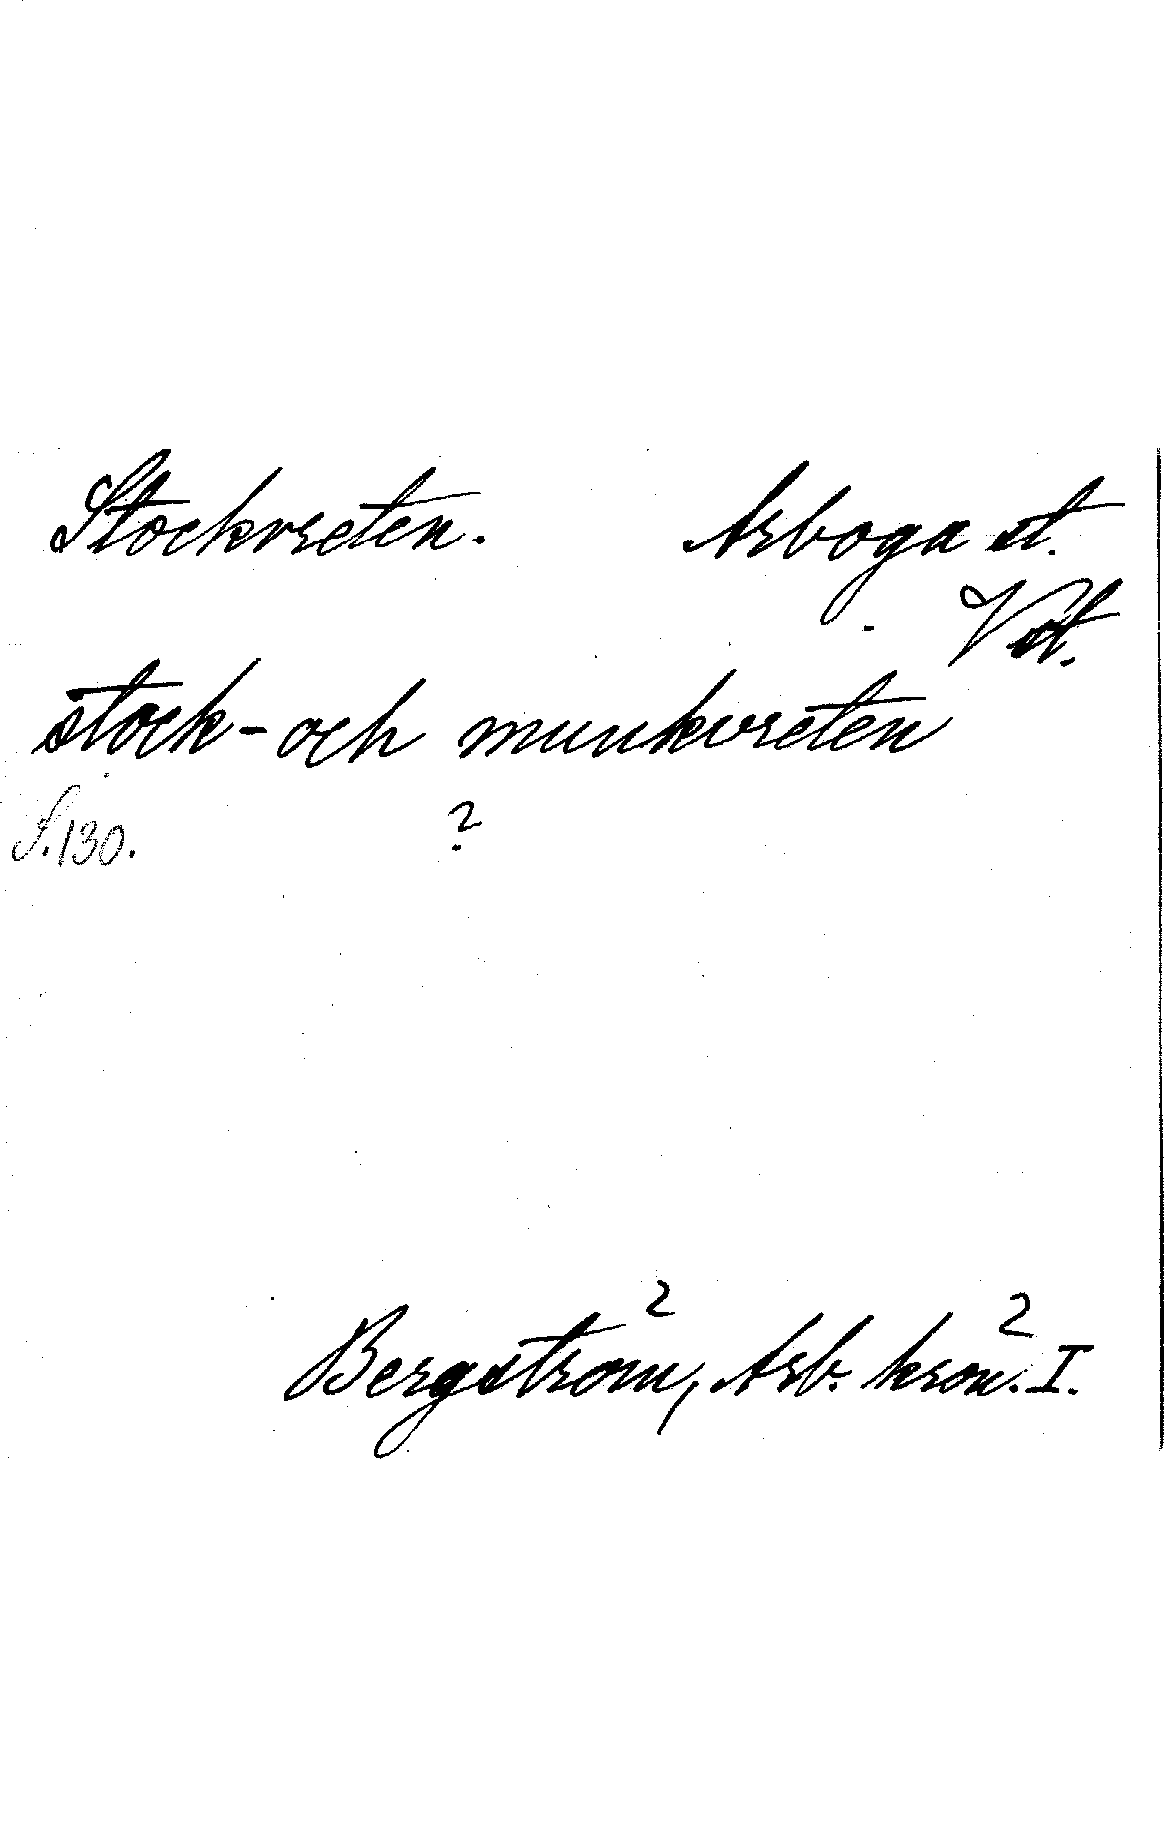 Stockvreten. Arboga st.
Vstm.
stock- och munkvreten
S. 130. ?
Bergström, Arb. krön. I.